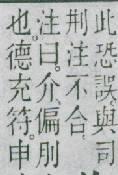 此恐誤與司
荆注不合
注曰介偏刖
也德充符申